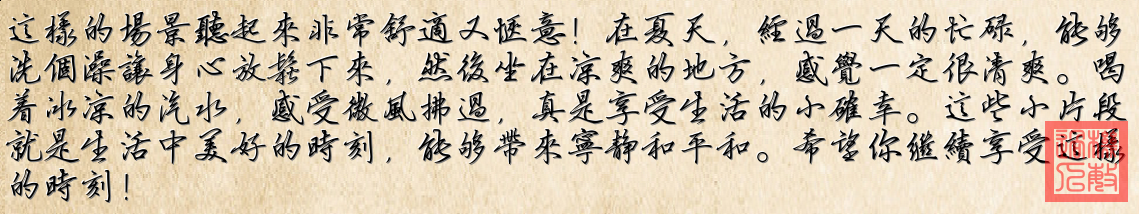 這樣的場景聽起來非常舒適又愜意！在夏天，經過一天的忙碌，能够
洗個澡讓身心放鬆下來，然後坐在凉爽的地方，感覺一定很清爽。喝
着冰凉的汽水，感受微風拂過，真是享受生活的小確幸。這些小片段
就是生活中美好的時刻，能够帶來寧靜和平和。希望你繼續享受這樣
的時刻！